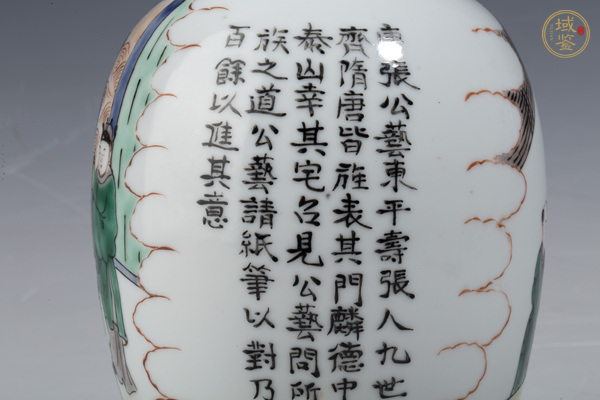 唐張公藝東平壽張人九世
齊隋唐皆旌表其門麟德中
泰山幸其宅召見公藝問所
族之道公藝請紙筆以對乃
百餘以進其意
域鑒